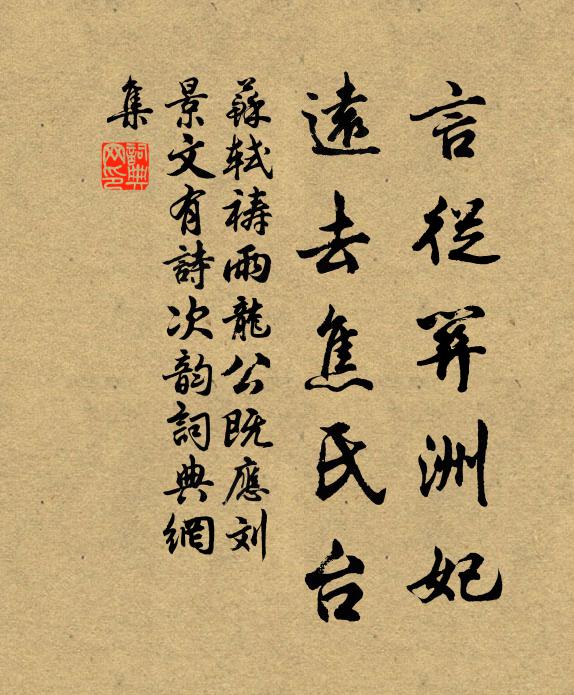 言從關洲妃
遠去焦氏台
蘇軾禱雨龍公既應刘
景文有詩次韵詞典網
集
詞典
网印